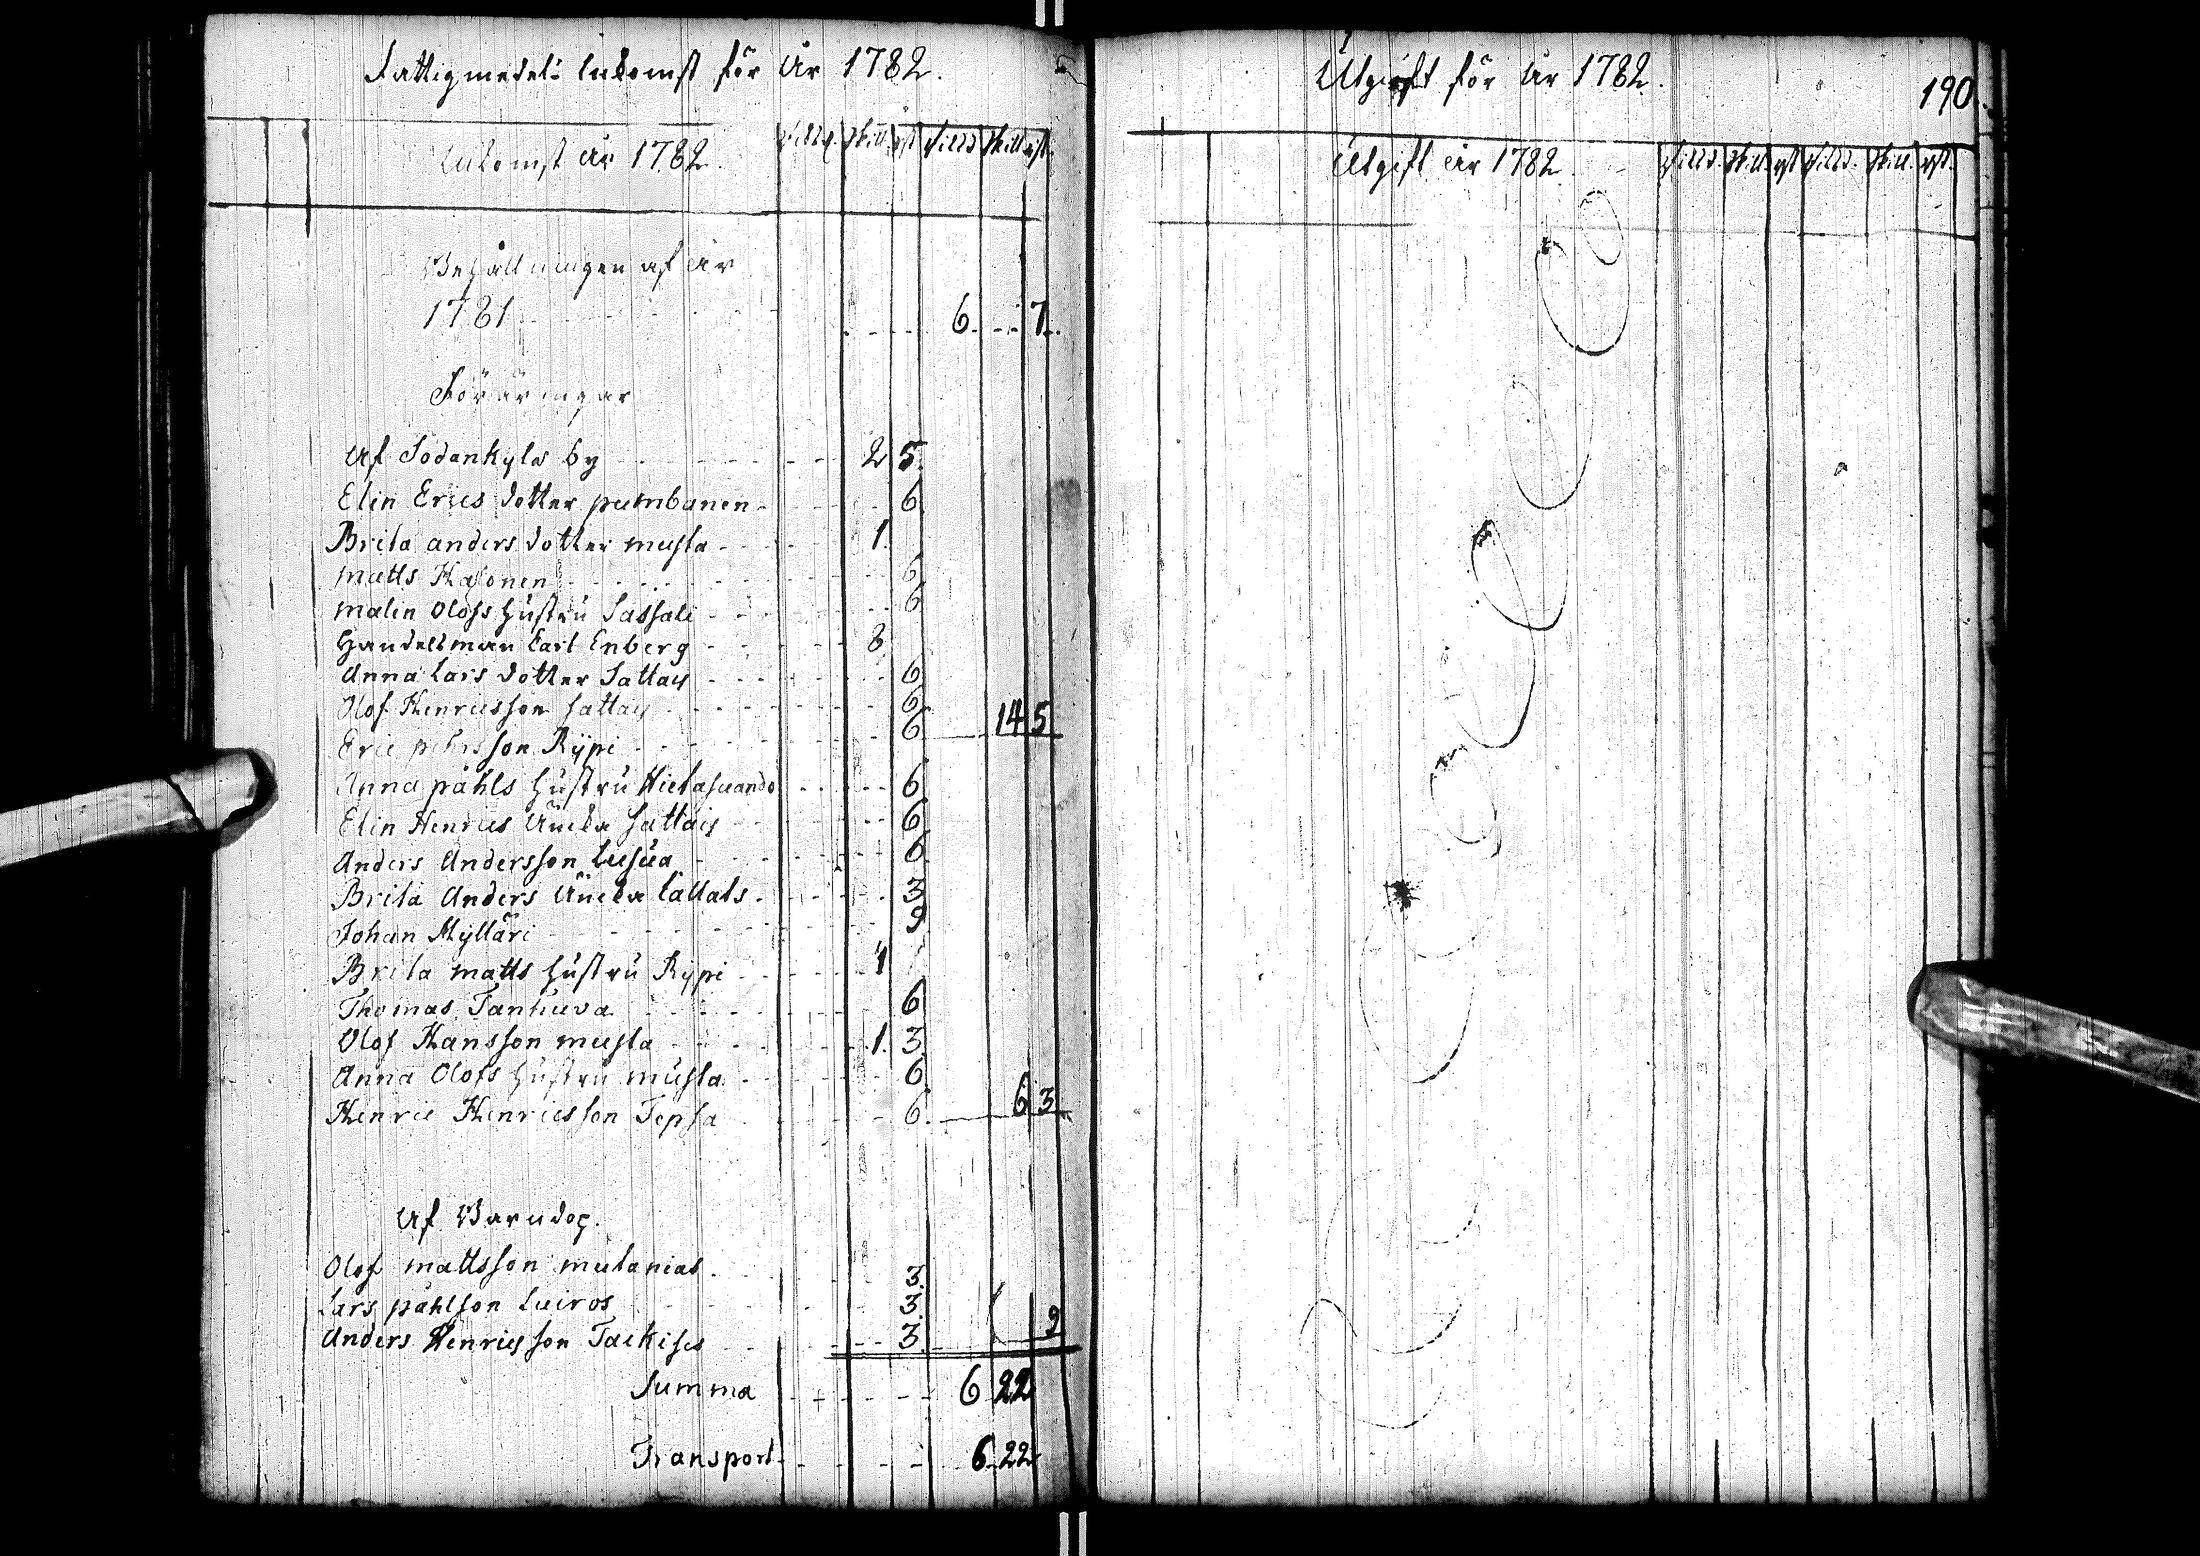 Fattigmedels Inkomst för År 1782.
Inkomst år 1782. Riksd. skill. rst. Riksd. skill. rst.
Behållningen af år
1781 6. 7.
Föräringar
Af Sodankylä by 2 5.
Elin Erics dotter pumbanen 6
Brita anders dotter musta 1.
matts Kasonen 6
malin Olofs hustru Sassali 6
Handelsman Carl Enberg 8
Anna Lars dotter Sattaj 6
Olof Henricsson Sattaj 6
Eric pehrsson Rÿpi 6 14 5
Anna påhls hustru Hietasuando 6
Elin Henrics Äncka Sattaj 6
Anders Andersson Lusua 6
Brita Anders Äncka 3
Johan Mÿlläri 9
Brita matts hustru Rÿpi 1
Thomas Tanhuva 6
Olof Hansson musta 1. 3
Anna Olofs hustru musta 6
Henric Henricsson Tepsa 6. 6 3
Af
Olof mattsson mutanias 3.
Lars påhlson Luiros 3.
Anders Henricsson 3. 9
Summa 6 22
Transport 6 22
Utgift för År 1782.
190.
Utgift år 1782 Riksd. skill. rst Riksd. skill. rst.